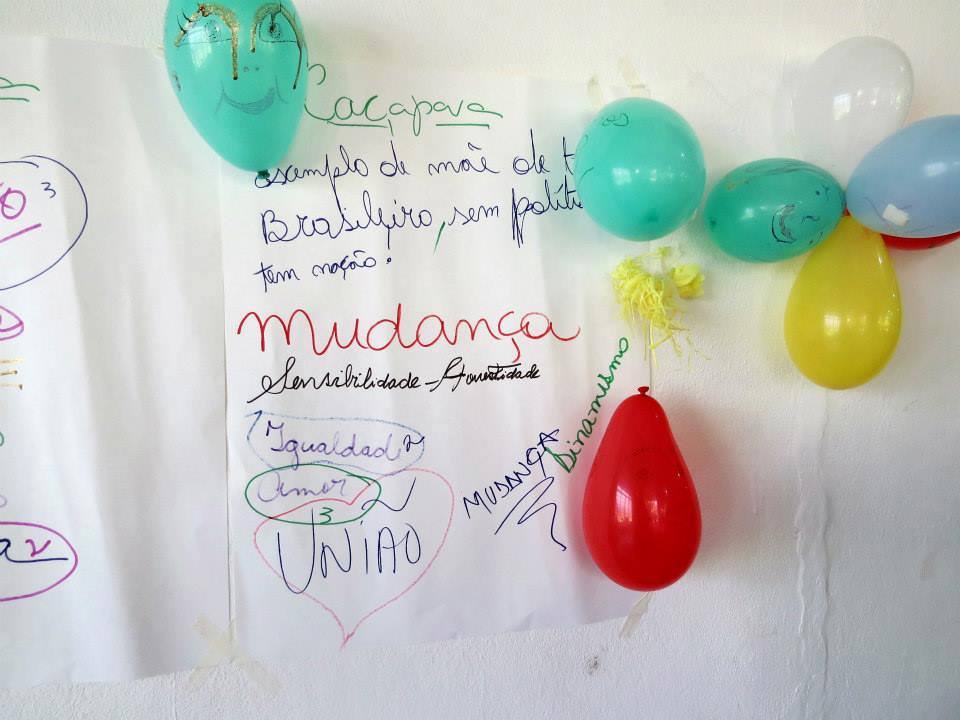 Caçapava
exemplo de mãe de
Brasileiro, sem
tem noção.
Mudança
Sensibilidade - Honestidade
Igualdade 2
Amor
3
UNIÃO
MUDANÇA
Dinamismo
3
2